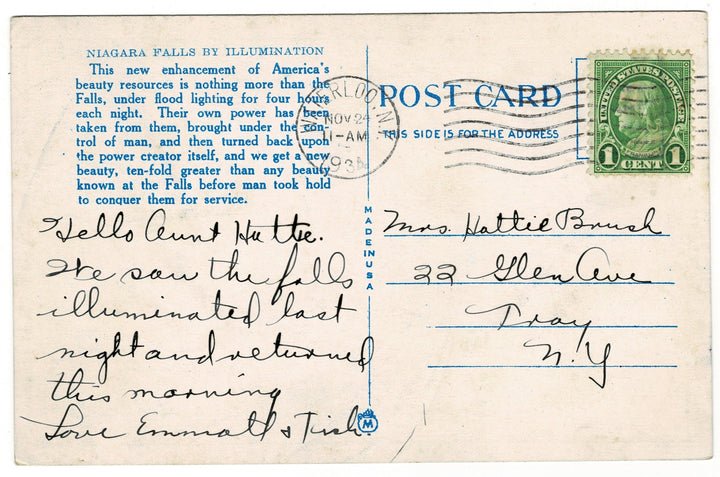 NIAGARA FALLS BY ILLUMINATION
This new enhancement of America's
beauty resources is nothing more than the
Falls, under flood lighting for four hours
each night. Their own power has been
taken from them, brought under the con-
trol of man, and then turned back upon
the power creator itself, and we get a new
beauty, ten-fold greater than any beauty
known at the Falls before man took hold
to conquer them for service.
Hello Aunt Hattie.
We saw the falls
illuminated last
night and returned
this morning
Love Emmott & Tish
MADE IN USA
M
POST CARD
THIS SIDE IS FOR THE ADDRESS
WATERLOO N.Y.
NOV 24
11-AM
193
UNITED STATES POSTAGE
1 CENT 1
Mrs. Hattie Brush
22 Glen Ave
Troy
N.Y